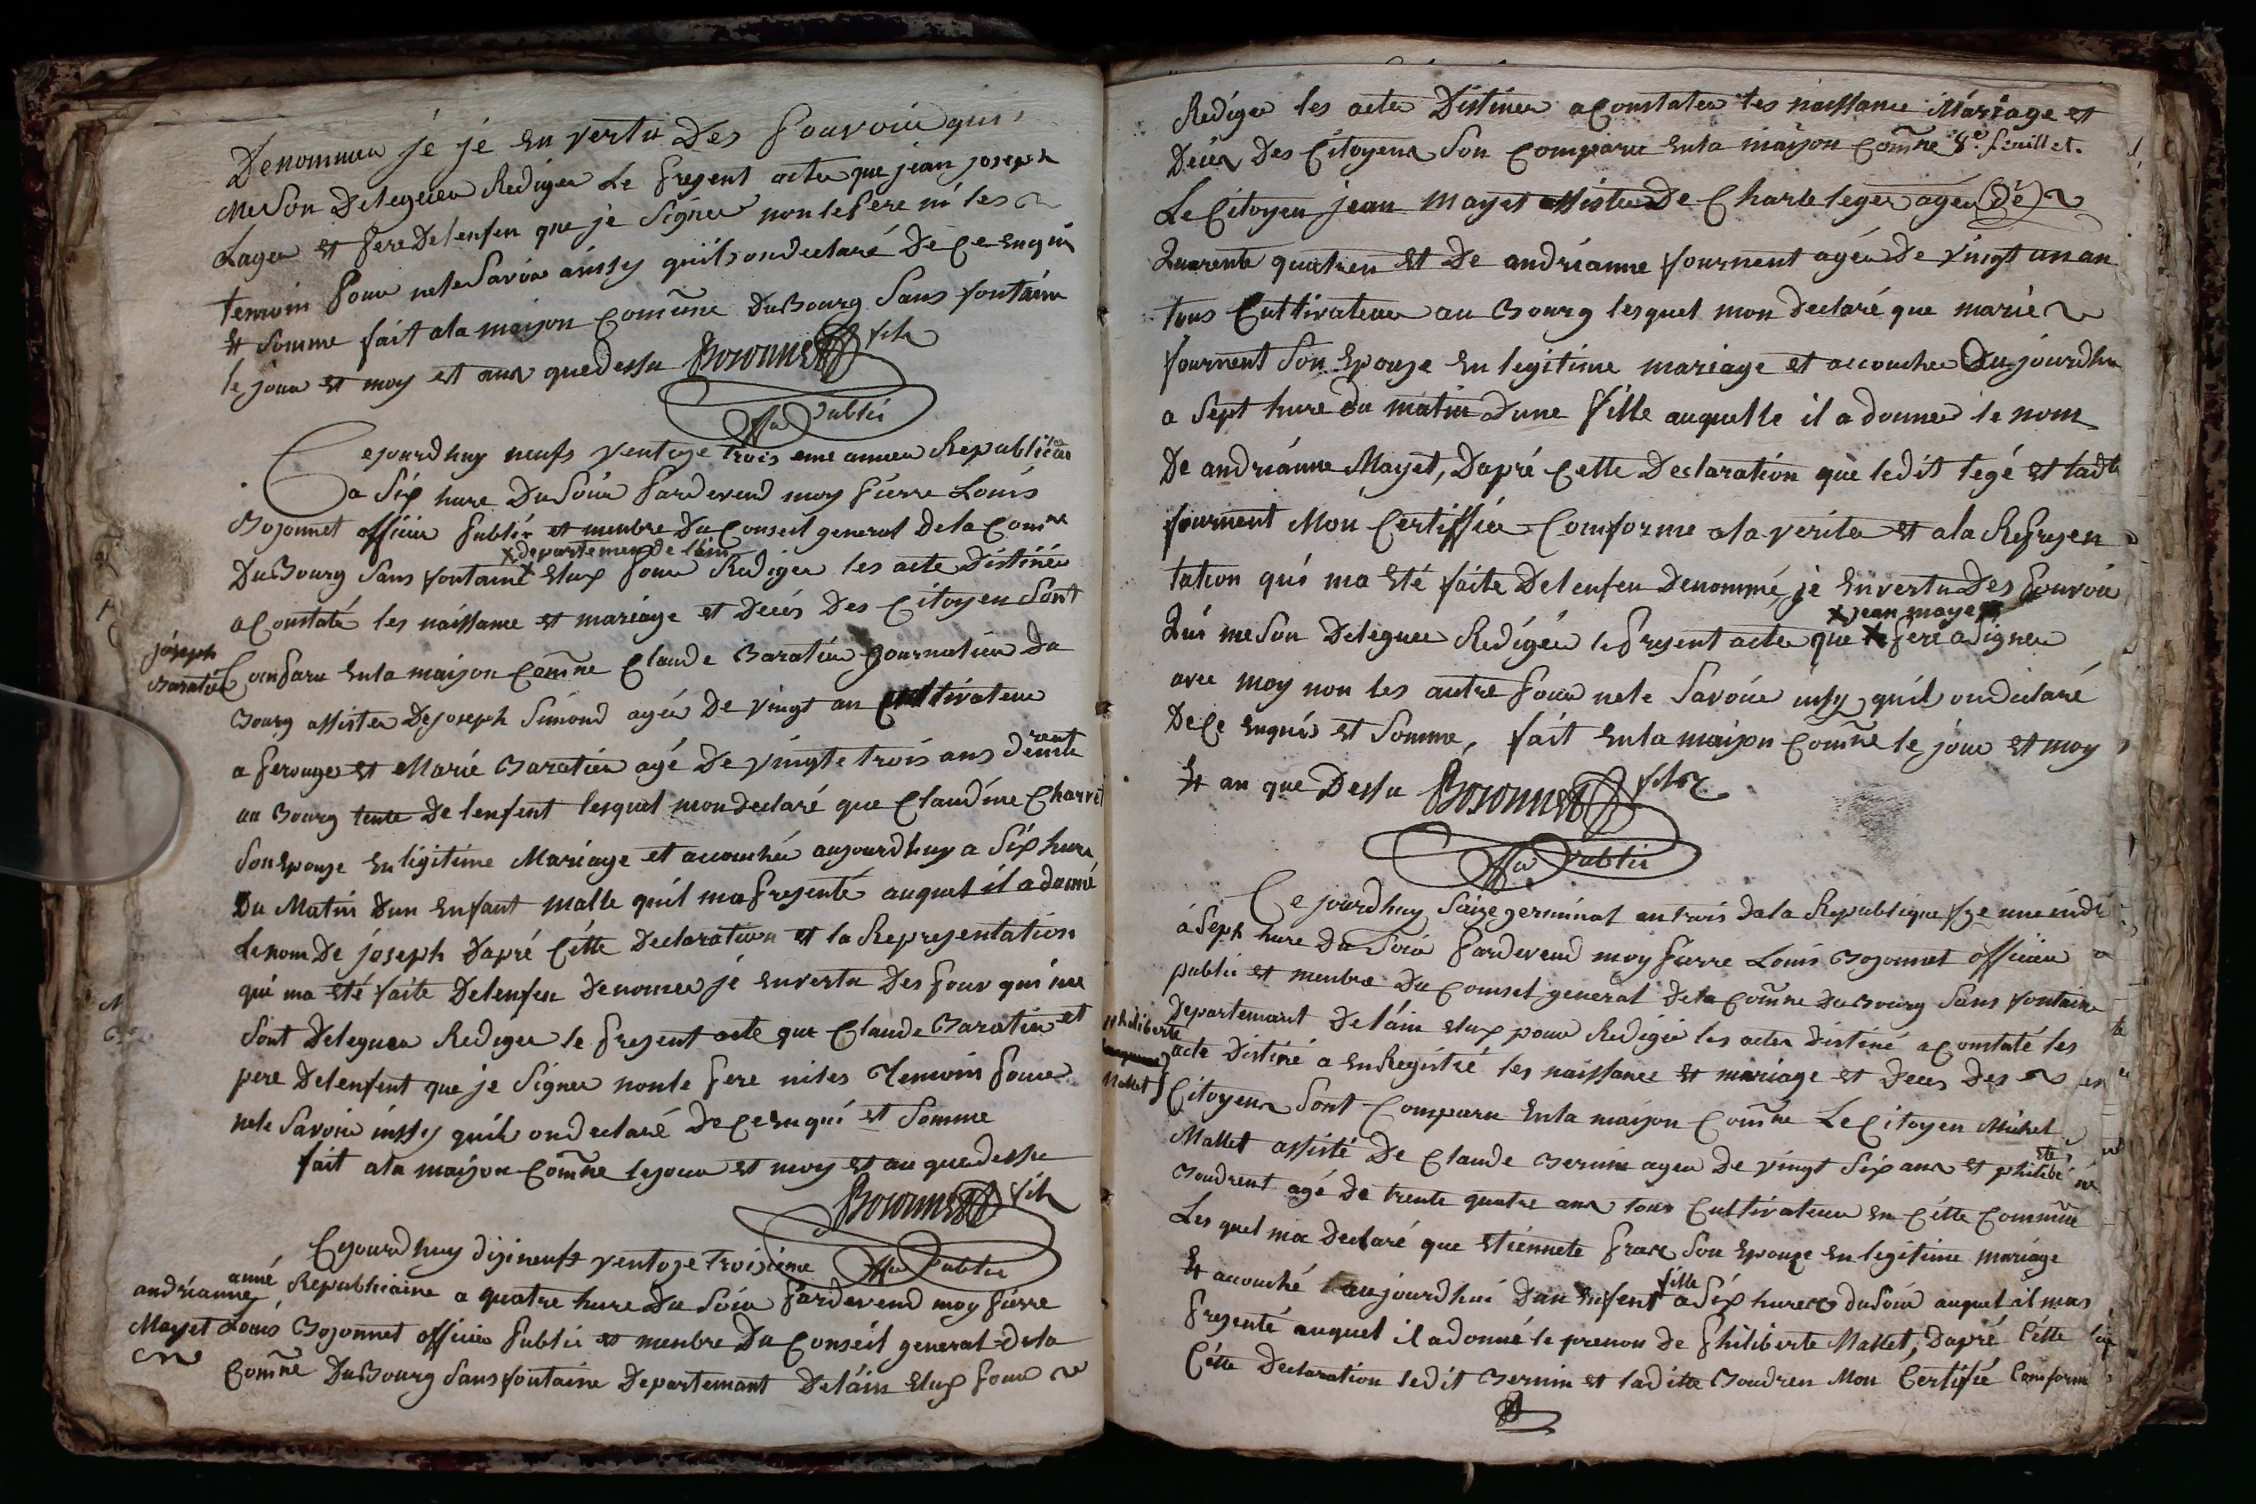 Denommeu je je En vertu Des pouvoir qui
me son Delegueu Rediger Le present acteu que jean joseph
Lager et pere Delenfen que je signeu non le pere ni les
temoin pour nele savoir ainsy quils ondeclaré De ce enquis
Et somme fait ala maison Comũne DuBourg sans fontaine
le jour et moy et an que dessu Bojonnet fils
offi Public
Cejourdhuy neufs ventoze trois eme anneu Republicai
a six hure Du soir pardevend moy pierre Louis
Bojonnet officier public et menbre Du Conseil general de la Comne
DuBourg sans fontaine X departemen de lain Elup pour Rediger les acte Distiné
a Constaté les naissance et mariage et Decés Des Citoyen sont
joseph
Baratier
Conparu Enla maison Comñe Claude Baratier journalier Du
Bourg assisteu De joseph Simond ageu De vingt an Cultivateur
a perouge et Marie Baratier agé De vingte trois ans demeurent
au Bourg tente De lenfent lesquel mon declaré que Claudine Charvet
son Epouze En ligitime Mariage et accouchée aujourdhuy a six hure
Du Matin Dun Enfant malle quil ma presenté auquel il a donné
le nom De joseph Dapré Cette Declaration et la Representation
qui ma Eté faite Delenfen Denomeu je Envertu Des pouv qui me
sont Delegueu Rediger le present acte que Claude Baratier et
pere Delenfent que je signeu non le pere ni les Temoin pour
nele savoir inssy quils ondeclaré De ce Enqui et somme
fait ala maison Comñe le jour et moy et an que dessu
Bojonnet fils
offi Public
Cejourdhuy dizineufs ventoze troisieme
année Republicaine a quatre hure Du soir pardevend moy pierre
andrianne
Mayet
Louis Bojonnet officier public et menbre Du Conseil general dela
Comñe DuBourg sans fontaine Departemant Delain Elup pour
Rediger les acteu Distineu a Constateu les naissance Mariage et
Deceu Des Citoyens son Comparu Enla maison Comñe 8e. feuillet.
Le Citoyen jean Mayet assisteu De Charle leger ageu (dé)
Quarente quatreu et De andrianne fournent ageu De vingt un an
tous Cultivateur au Bourg lesquel mon declaré que marie
fournent son Epouze En legitime mariage et accoucheu Dujourdhu
a sept hure du matin Dune fille auquelle il a donneu le nom
De andriánne Mayet, Dapré Cette Declaration que ledit legé et ladte
fournent Mon Certiffieu Comforme ala veriteu et ala Represen
tation qui ma Eté faite Delenfen Denommé, je Envertu Des pouvoir
Qui me son Delegueu Redigér le present acteu que X jean mayet pere a signeu
avec moy non les autre pour nele savoir insy quil ondeclaré
De Ce Enquis et somme, fait Enla maison Comñe le jour et moy
Et an que Dessu Bojonnet fils
offi Public
Ce jourdhuy seize germinal an trois dela Republique fze une indi
á seph hure Du soir pardevend moy pierre Louis Bojonnet officier
public et menbre Du Comsel general dela Comñe Du Bourg sans fontaine
philiberte
Mallet
Departemant Delain Elup pour Redigér les acteu distiné a Constaté les
acte Distiné a EnRegistré les naissance et mariage et Deces Des
Citoyens sont Comparu Enla maison Comñe Le Citoyen Michel
Mallet assisté De Claude Bernin ageu De vingt six ans et philiberte
Boudrent agé De trente quatre ans tous Cultivateur en Cette Commune
Les quel ma Declaré que Etiennete frare son Epouze En legitime mariage
Et acouché aujourdhui Dun Enfent fille a six hure du soir auquel il mas
presenté auquel il a donné le prenon de philiberte Mallet, Dapré Cette
Cette Declaration ledit Bernin et ladite Boudren Mon Certifié Comform